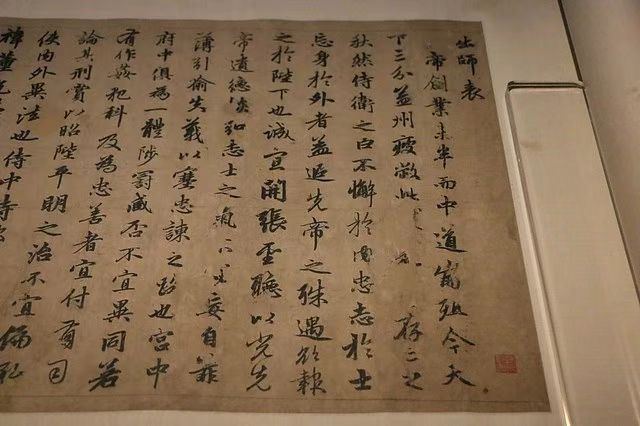 出師表
帝創業未半而中道崩殂今天
下三分益州疲敝此存亡之
秋然侍衛之臣不懈於內忠志於士
忘身於外者蓋追先帝之殊遇欲報
之於陛下也誠宜開張聖聽以光先
帝遺德恢弘志士之氣不宜妄自菲
薄引喻失義以塞忠諫之路也宮中
府中俱為一體陟罰臧否不宜異同若
有作姦犯科及為忠善者宜付有司
論其刑賞以昭陛平明之治不宜偏私
使內外異法也侍中侍
禕董